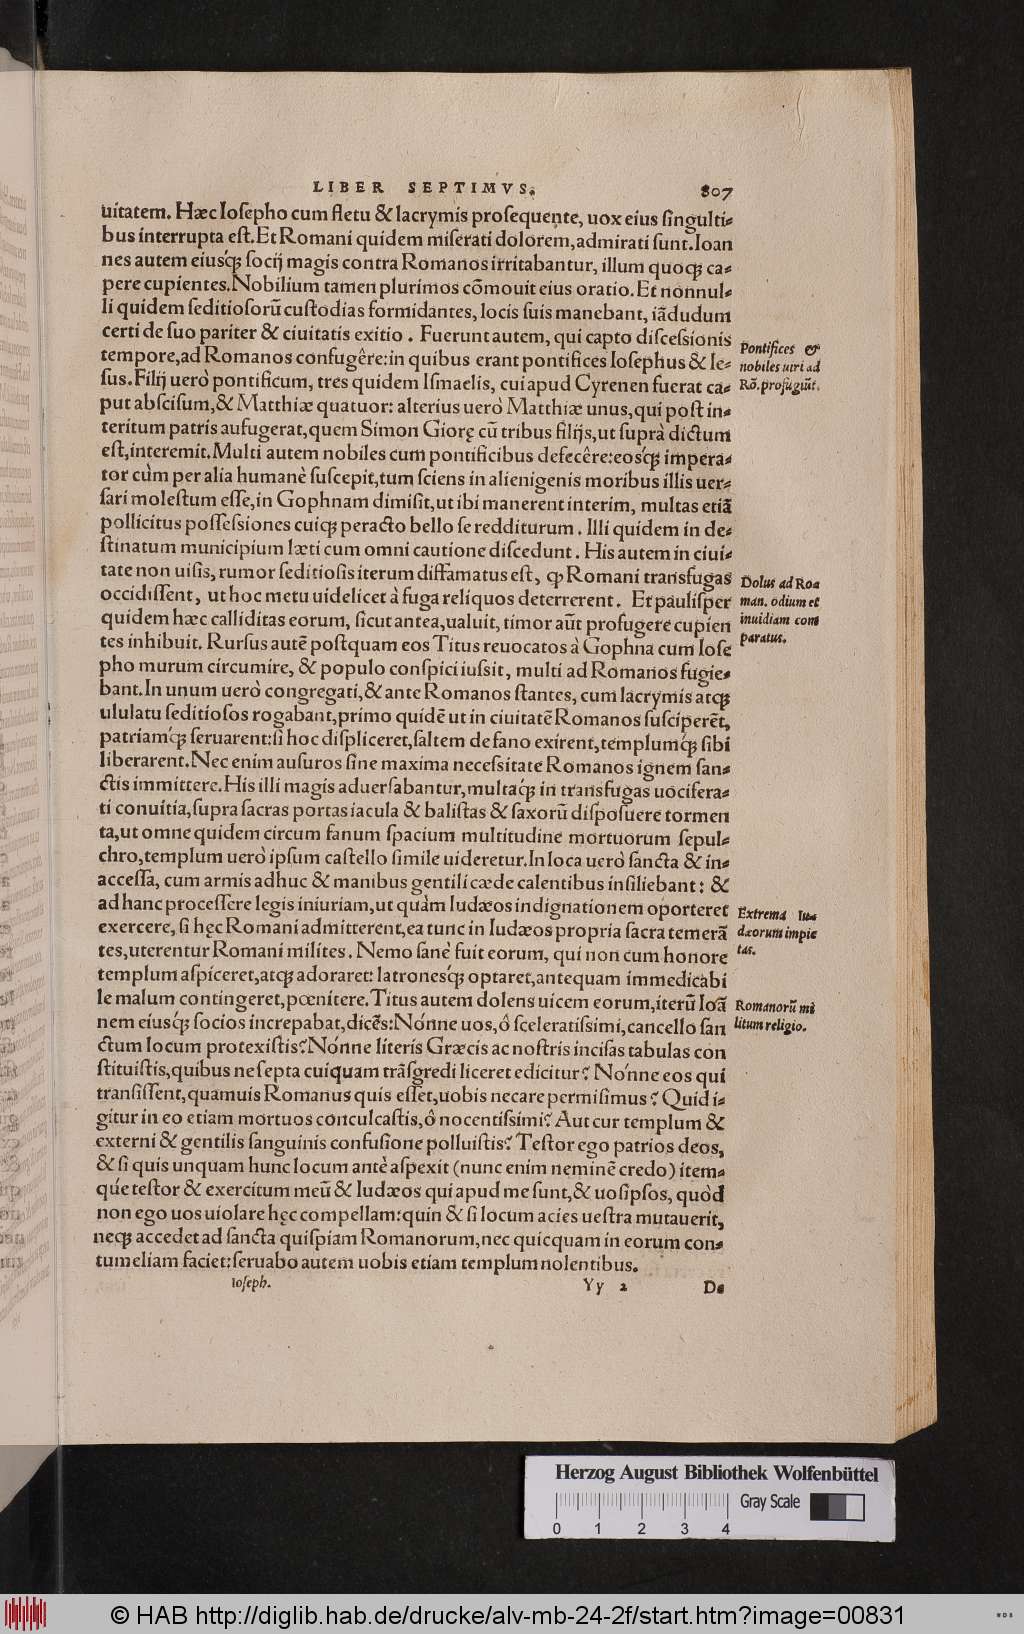 LIBER SEPTIMVS. 807
uitatem. Hæc Iosepho cum fletu & lacrymis prosequente, uox eius singulti-
bus interrupta est. Et Romani quidem miserati dolorem, admirati sunt. Ioan
nes autem eiusq́ꝫ socij magis contra Romanos irritabantur, illum quoqꝫ ca-
pere cupientes. Nobilium tamen plurimos cõmouit eius oratio. Et nonnul-
li quidem seditiosorũ custodias formidantes, locis suis manebant, iãdudum
certi de suo pariter & ciuitatis exitio. Fuerunt autem, qui capto discessionis
tempore, ad Romanos confugêre: in quibus erant pontifices Iosephus & Ie-
sus. Filij uerò pontificum, tres quidem Ismaelis, cui apud Cyrenen fuerat ca-
put abscisum, & Matthiæ quatuor: alterius uerò Matthiæ unus, qui post in-
teritum patris aufugerat, quem Simon Gioræ cũ tribus filijs, ut suprà dictum
est, interemit. Multi autem nobiles cum pontificibus defecêre: eosq́ꝫ impera-
tor cùm per alia humanè suscepit, tum sciens in alienigenis moribus illis uer-
sari molestum esse, in Gophnam dimisit, ut ibi manerent interim, multas etiã
pollicitus possessiones cuiqꝫ peracto bello se redditurum. Illi quidem in de-
stinatum municipium læti cum omni cautione discedunt. His autem in ciui-
tate non uisis, rumor seditiosis iterum diffamatus est, ꝙ Romani transfugas
occidissent, ut hoc metu uidelicet à fuga reliquos deterrerent. Et paulisper
quidem hæc calliditas eorum, sicut antea, ualuit, timor aũt profugere cupien
tes inhibuit. Rursus autẽ postquam eos Titus reuocatos à Gophna cum Iose
pho murum circumire, & populo conspici iussit, multi ad Romanos fugie-
bant. In unum uerò congregati, & ante Romanos stantes, cum lacrymis atqꝫ
ululatu seditiosos rogabant, primo quidẽ ut in ciuitatẽ Romanos susciperẽt,
patriamq́ꝫ seruarent: si hoc displiceret, saltem de fano exirent, templumq́ꝫ sibi
liberarent. Nec enim ausuros sine maxima necessitate Romanos ignem san-
ctis immittere. His illi magis aduersabantur, multaq́ꝫ in transfugas uocifera-
ti conuitia, supra sacras portas iacula & balistas & saxorũ disposuere tormen
ta, ut omne quidem circum fanum spacium multitudine mortuorum sepul-
chro, templum uerò ipsum castello simile uideretur. In loca uerò sancta & in-
accessa, cum armis adhuc & manibus gentili cæde calentibus insiliebant: &
ad hanc processere legis iniuriam, ut quàm Iudæos indignationem oporteret
exercere, si hęc Romani admitterent, ea tunc in Iudæos propria sacra temerã
tes, uterentur Romani milites. Nemo sanè fuit eorum, qui non cum honore
templum aspiceret, atqꝫ adoraret: latronesq́ꝫ optaret, antequam immedicabi
le malum contingeret, pœnitere. Titus autem dolens uicem eorum, iterũ Ioã
nem eiusq́ꝫ socios increpabat, dicẽs: Nónne uos, ô sceleratissimi, cancello san
ctum locum protexistis? Nónne literis Græcis ac nostris incisas tabulas con
stituistis, quibus ne septa cuiquam trãsgredi liceret edicitur? Nónne eos qui
transissent, quamuis Romanus quis esset, uobis necare permisimus? Quid i-
gitur in eo etiam mortuos conculcastis, ô nocentissimi? Aut cur templum &
externi & gentilis sanguinis confusione polluistis? Testor ego patrios deos,
& si quis unquam hunc locum antè aspexit (nunc enim neminẽ credo) item-
qúe testor & exercitum meũ & Iudæos qui apud me sunt, & uosipsos, quòd
non ego uos uiolare hęc compellam: quin & si locum acies uestra mutauerit,
neqꝫ accedet ad sancta quispiam Romanorum, nec quicquam in eorum con-
tumeliam faciet: seruabo autem uobis etiam templum nolentibus.
Ioseph. Yy 2 De
Pontifices &
nobiles uiri ad
Rõ. profugiũt.
Dolus ad Ro-
man. odium et
inuidiam com
paratus.
Extrema Iu-
dæorum impie
tas.
Romanorũ mi
litum religio.
Herzog August Bibliothek Wolfenbüttel
Gray Scale
0 1 2 3 4
© HAB http://diglib.hab.de/drucke/alv-mb-24-2f/start.htm?image=00831